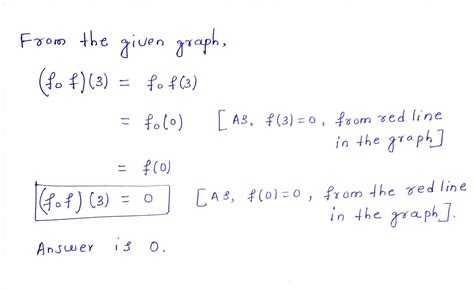 From the given graph,
(f o f)(3) = f o f(3)
= f o (0) [As, f(3)=0, from red line
in the graph]
= f(0)
(f o f)(3) = 0 [As, f(0)=0, from the red line
in the graph].
Answer is 0.